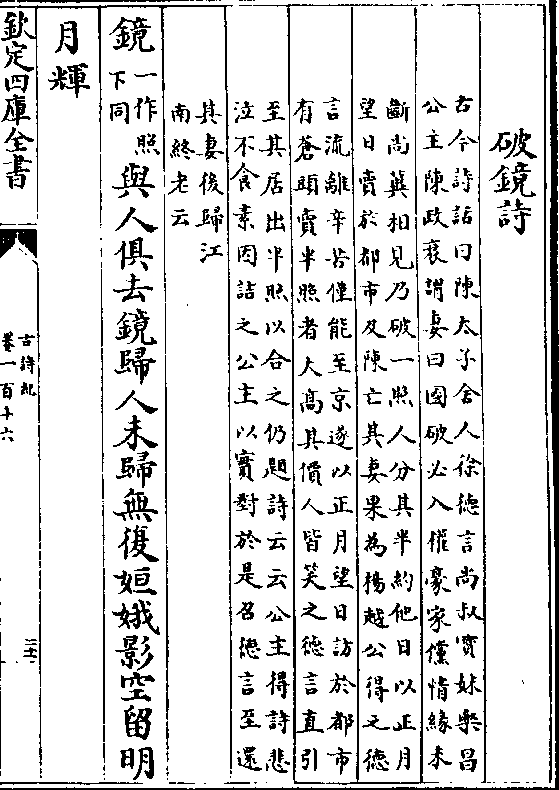 破鏡詩
古今詩話曰陳太子舍人徐徳言尚叔寳妹樂昌
公主陳政衰謂妻曰國破必入權豪家儻情緣未
斷尚冀相見乃破一照人分其半約他日以正月
望日賣於都市及陳亡其妻果為楊越公得之徳
言流離辛苦僅能至京遂以正月望日訪於都市
有蒼頭賣半照者大髙其價人皆笑之徳言直引
至其居出半照以合之仍題詩云云公主得詩悲
泣不食素因詰之公主以實對於是召徳言至還
其妻後歸江
南終老云
鏡一作照
下同與人俱去鏡歸人未歸無復姮娥影空留明
月輝
欽定四庫全書
古詩紀
卷一百十六